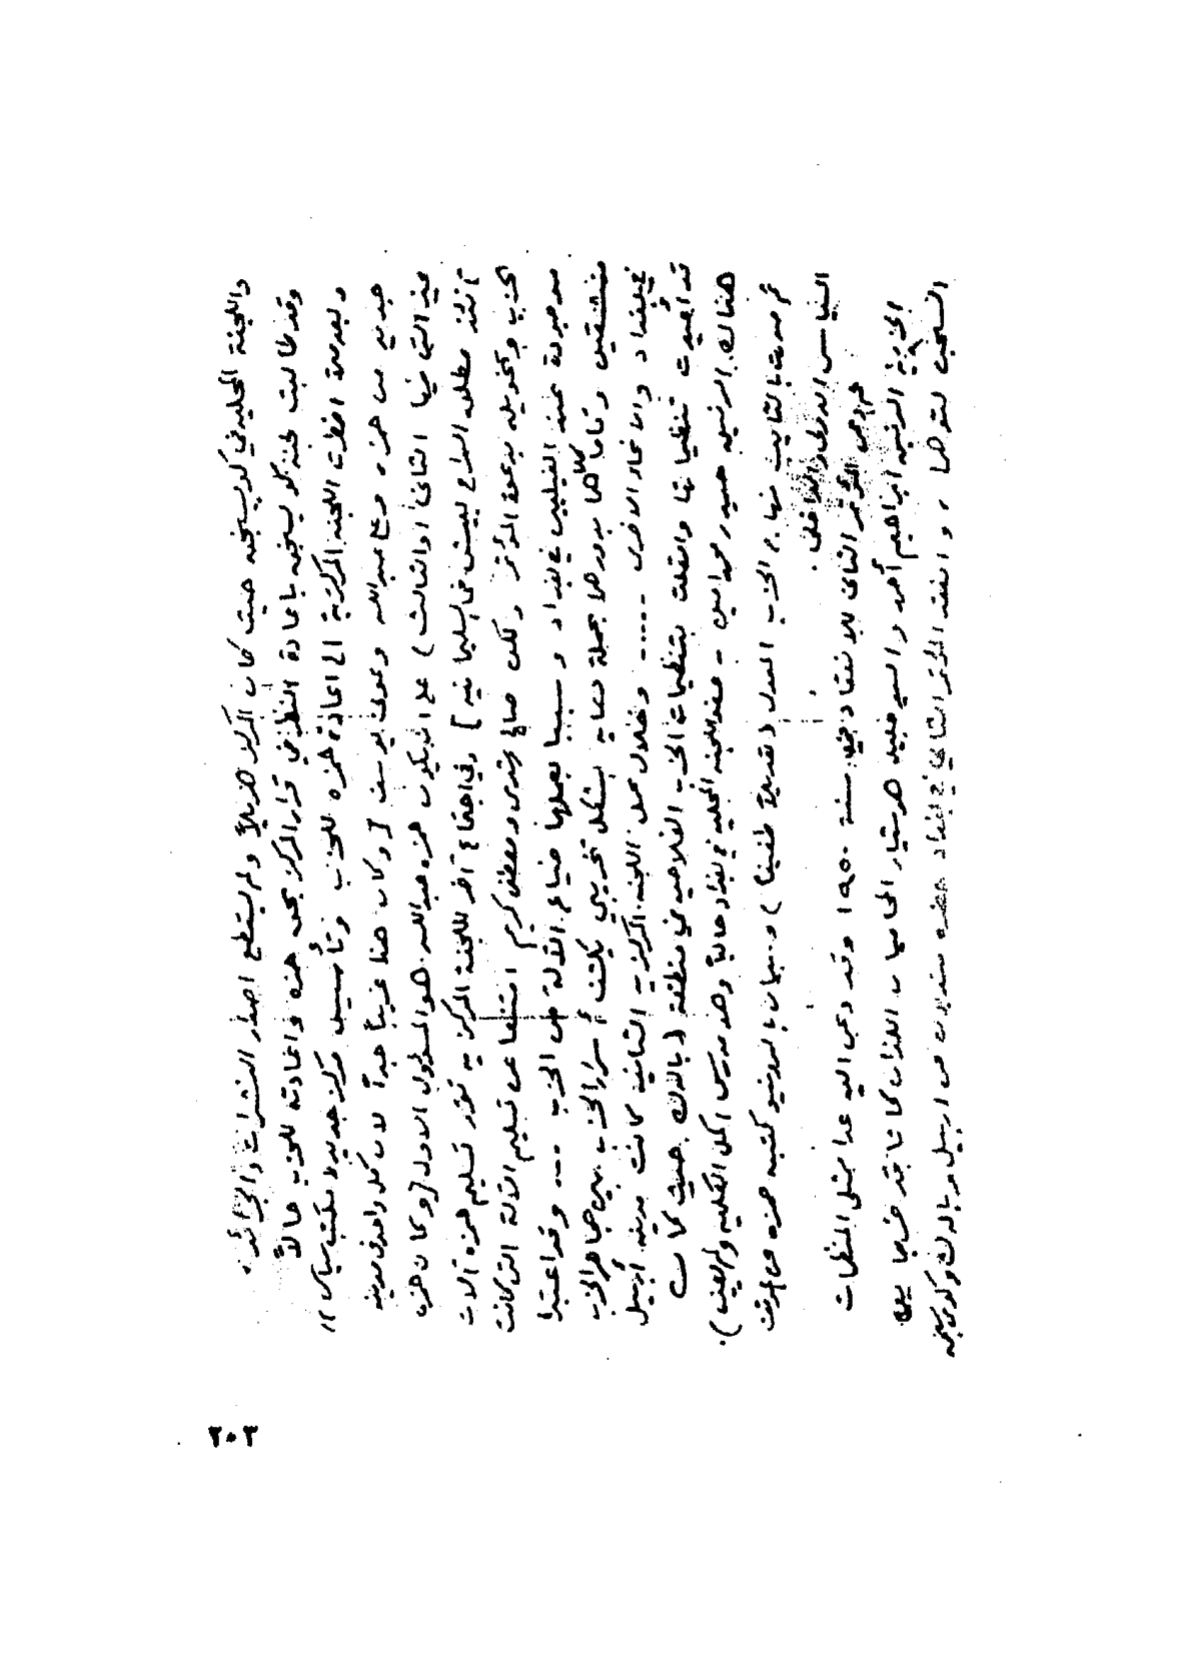 واللجنة المحلية في كويسنجق حيث كان المركز هزيلاً ولم يستطع اصدار النشرات والجرائد.
وقد طالبت لجنة كويسنجق باعادة النظر في قرار المركز بحق حمزه واعادته للحزب حالاً
وبعد مدة اضطرت اللجنة المركزية الى اعادة حمزه للحزب وتأسيس مركز جديد / مكتب سياسي //
جديد من حمزه و عبدالله وعوني يوسف [وكان هذا غريباً جداً لان كل واحد
التي فيها الثاني او الثالث) على ان يكون حمزه عبدالله هو المسؤول الاول [وكان حزب
مطلق السراح ليعيش في السليمانية] وفي اجتماع آخر للجنة المركزية تقرر تسليم حمزه آلات
الحزب وتخويله بدعوة المؤتمر ولكن صالح رشدي ومصطفى كريم امتنعا عن تسليم الآلة التي كانت
موجودة عند الفيليين في بغداد وسببا بعملها ضياع الآلة على الحزب ---- وقد اعتبرا
منشقين وقاما بدورهما بحملة دعاية بشكل تخريبي يكشف أسرار الحزب بين جماهير الحزب
في بغداد والانحاد الاخرى ----- وخلال عمل اللجنة المركزية الثانية كانت مدينة أربيل
قد أعيدت تنظيماتها واتصلت بتنظيمات الحزب الفلاحية في منطقة (بالك) حيث كان
هناك الرئيس حميد محمد امين - عضو اللجنة المحلية في بغداد حالياً وهو مدرس اكمل الكلية ولم يعين).
ثم صدرت بالتتابع منهاج الحزب المعدل (تعديلاً طفيفاً) وبيان بالرونيو كتبه حمزه عن الموقف
السياسي الدولي والداخلي.
المؤتمر الثاني للانعقاد سنة ١٩٥٠ وقد دعي اليه عدا ممثلي المنظمات
الحزبية الرئيس ابراهيم أحمد والسيد هوشيار المحاميان اللذان كانا قد خرجا من
السجن لتوهما، وانعقد المؤتمر الثاني في بغداد حضره مندوبون من اربيل وبالك وكويسنجق
٢٠٢